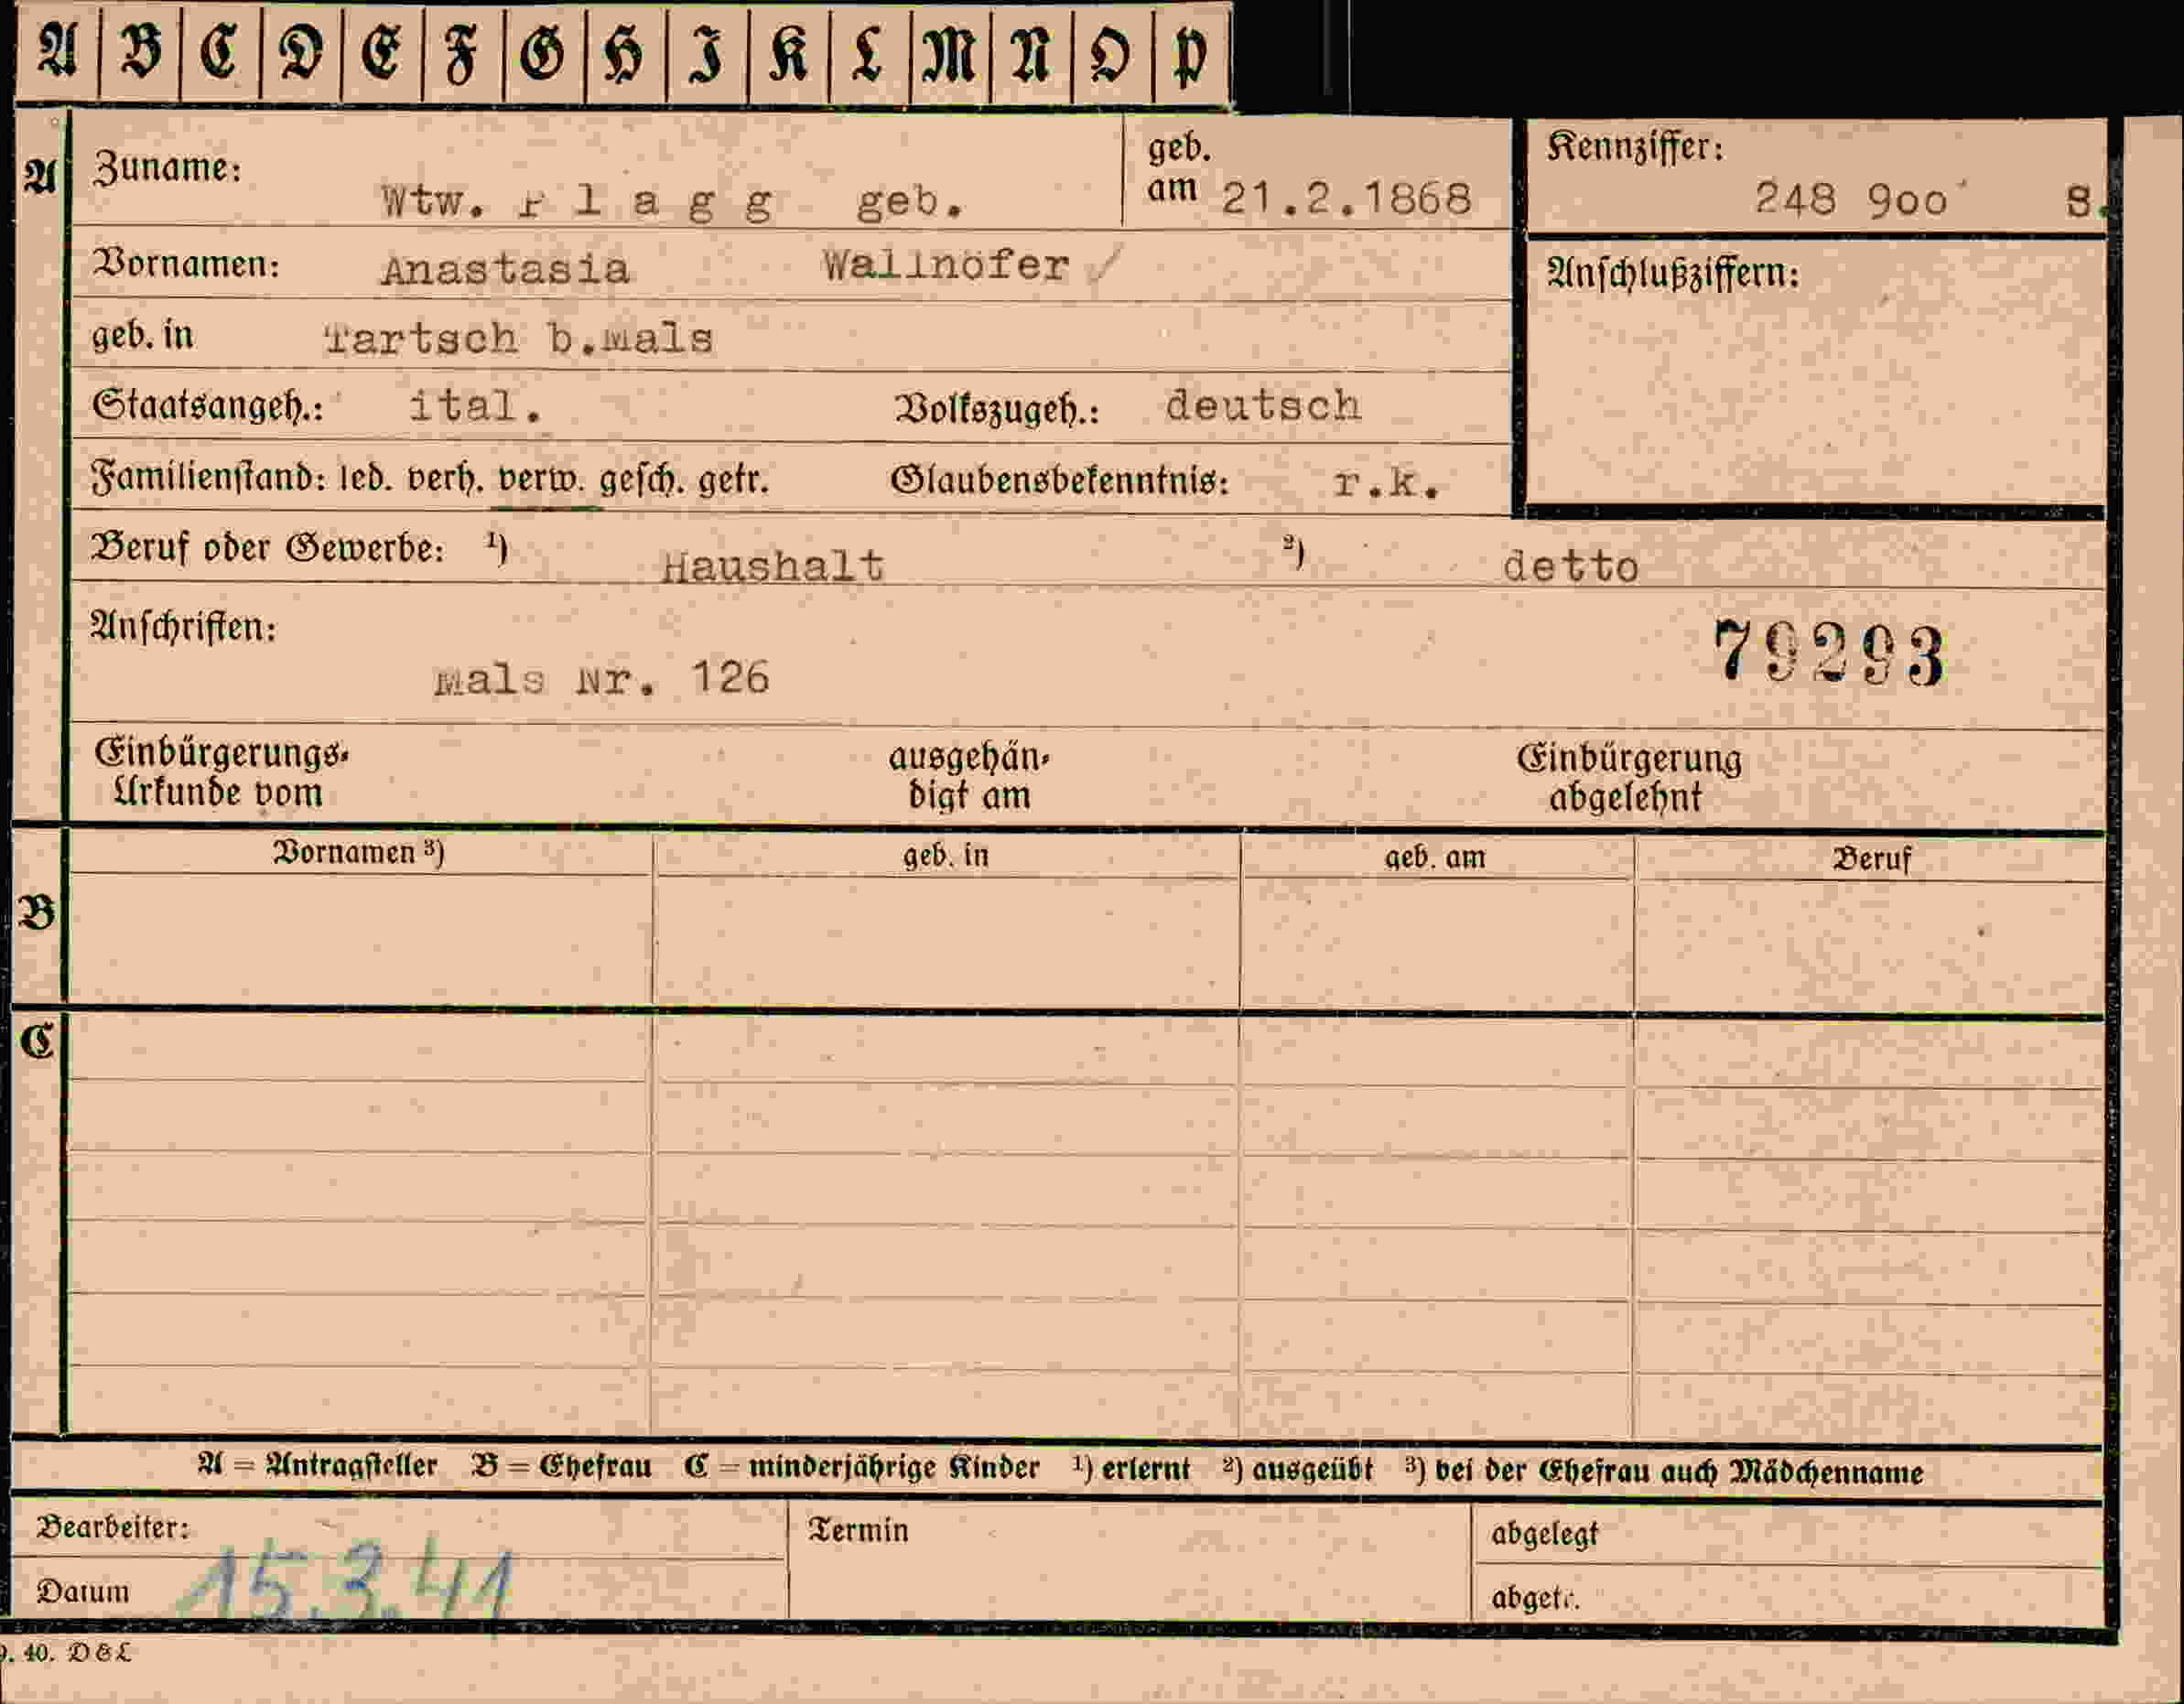 A B C D E F G H I K L M N O P
A Zuname: Wtw. Flagg geb. geb. am 21.2.1868 Kennziffer: 248 900 S.
Vornamen: Anastasia Wallnöfer Anschlußziffern:
geb. in Tartsch b.Mals
Staatsangeh.: ital. Volkszugeh.: deutsch
Familienstand: led. verh. verw. gesch. getr. Glaubensbekenntnis: r.k.
Beruf oder Gewerbe: ¹) Haushalt ²) detto
Anschriften: 79293
Mals Nr. 126
Einbürgerungs- ausgehän- Einbürgerung
Urkunde vom digt am abgelehnt
Vornamen ³) geb. in geb. am Beruf
B
C
A = Antragsteller B = Ehefrau C = minderjährige Kinder ¹) erlernt ²) ausgeübt ³) bei der Ehefrau auch Mädchenname
Bearbeiter: Termin abgelegt
Datum 15.3.41 abgetr.
40. DEL